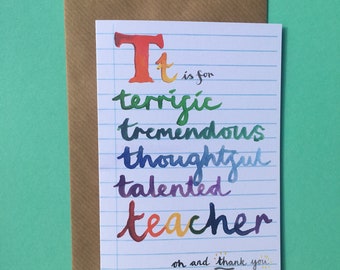 Tt is for
terrific
tremendous
thoughtful
talented
teacher
oh and thank you